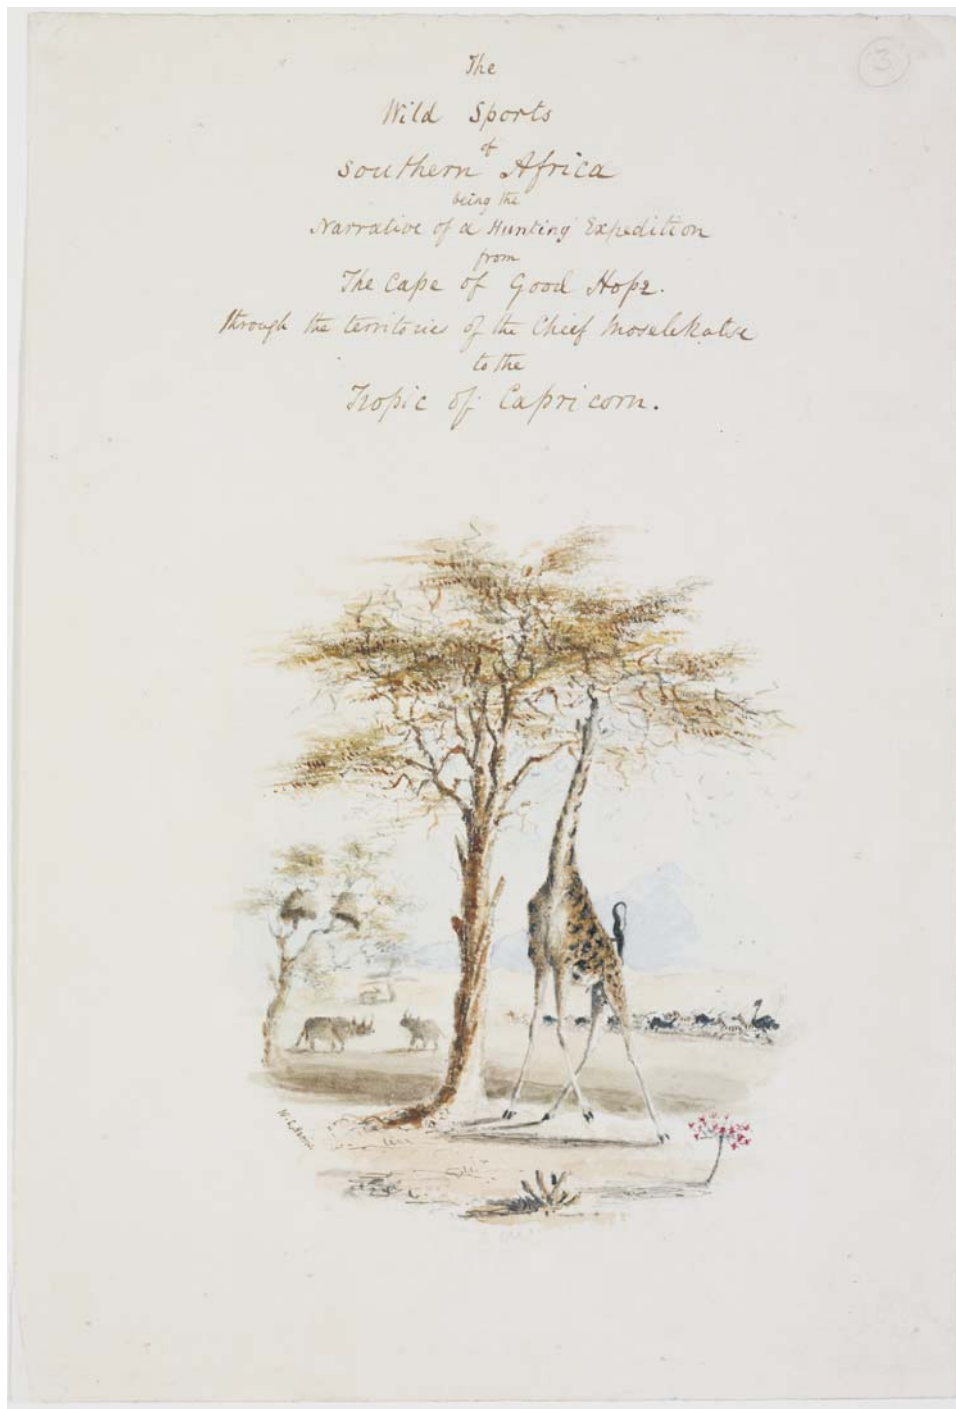 3
The
Wild Sports
of
Southern Africa
being the
Narrative of a Hunting Expedition
from
The Cape of Good Hope.
through the territories of the Chief Moselekatse
to the
Tropic of Capricorn.
W. C. Harris